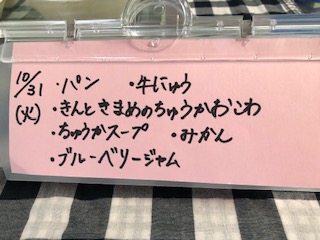 10/31 ・パン ・牛にゅう
(火) ・きんときまめのちゅうかおこわ
・ちゅうかスープ ・みかん
・ブルーベリージャム